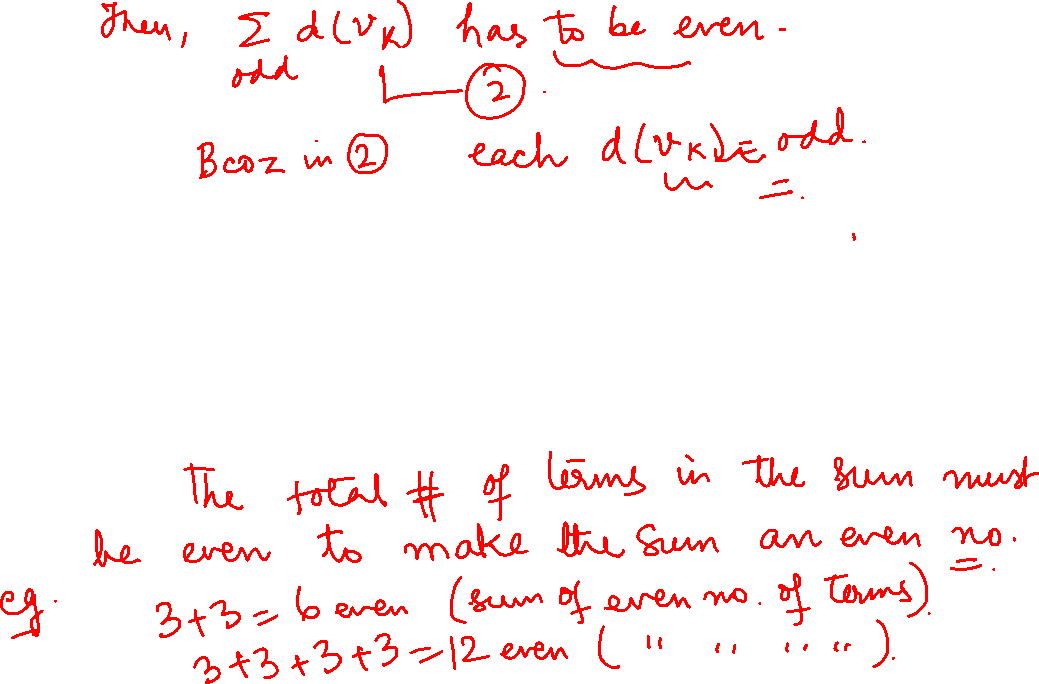 Then, Σ d(vK) has to be even.
odd ②.
Bcoz in ② each d(vK) = odd.
The total # of terms in the sum must
be even to make the sum an even no.
eg. 3+3=6 even (sum of even no. of terms).
3+3+3+3=12 even ( " " " " ).